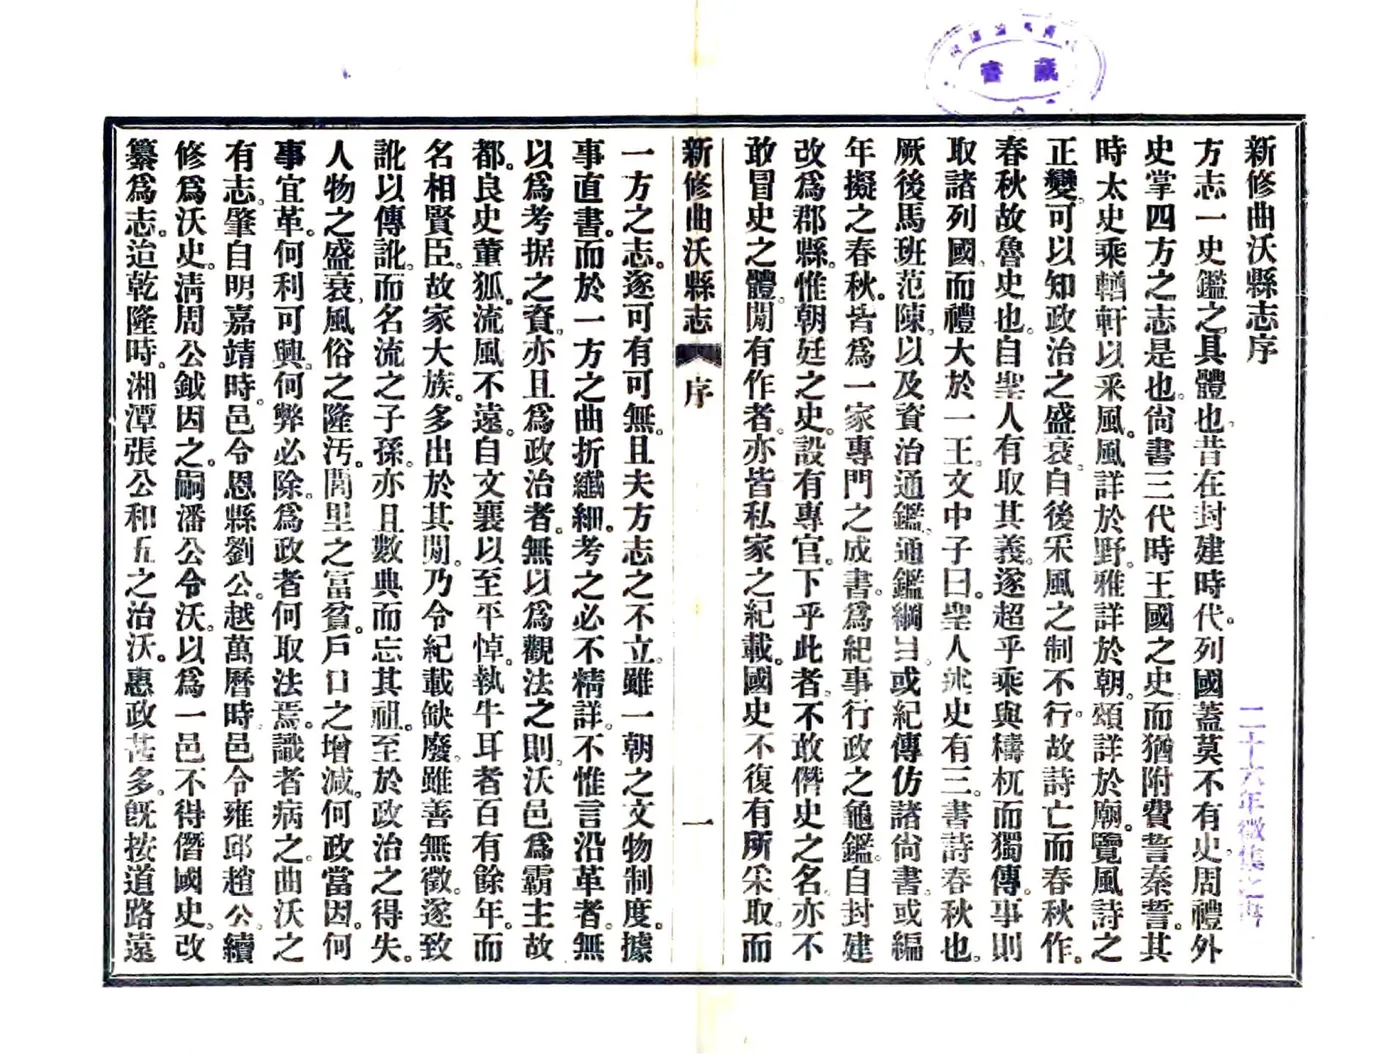 藏書
新修曲沃縣志序
二十六年徵集之書
方志一史鑑之具體也。昔在封建時代。列國蓋莫不有史。周禮外
史掌四方之志是也。尙書三代時王國之史而猶附費誓秦誓。其
時太史乘輶軒以采風。風詳於野。雅詳於朝。頌詳於廟。覽風詩之
正變。可以知政治之盛衰。自後采風之制不行。故詩亡而春秋作。
春秋故魯史也。自聖人有取其義。遂超乎乘與檮杌而獨傳。事則
取諸列國。而禮大於一王。文中子曰。聖人述史有三。書詩春秋也。
厥後馬班范陳。以及資治通鑑。通鑑綱目。或紀傳仿諸尙書。或編
年擬之春秋。皆爲一家專門之成書。爲紀事行政之龜鑑。自封建
改爲郡縣。惟朝廷之史。設有專官。下乎此者。不敢僭史之名。亦不
敢冒史之體。間有作者。亦皆私家之紀載。國史不復有所采取。而
新修曲沃縣志 序 一
一方之志。遂可有可無。且夫方志之不立。雖一朝之文物制度。據
事直書。而於一方之曲折纖細。考之必不精詳。不惟言沿革者。無
以爲考据之資。亦且爲政治者。無以爲觀法之則。沃邑爲霸主故
都。良史董狐。流風不遠。自文襄以至平悼。執牛耳者百有餘年。而
名相賢臣。故家大族。多出於其間。乃令紀載缺廢。雖善無徵。遂致
訛以傳訛。而名流之子孫。亦且數典而忘其祖。至於政治之得失。
人物之盛衰。風俗之隆汚。閭里之富貧。戶口之增減。何政當因。何
事宜革。何利可興。何弊必除。爲政者何取法焉。識者病之。曲沃之
有志。肇自明嘉靖時。邑令恩縣劉公。越萬曆時。邑令雍邱趙公。續
修爲沃史。淸周公鉞因之。嗣潘公令沃。以爲一邑不得僭國史。改
纂爲志。迨乾隆時。湘潭張公和五之治沃。惠政甚多。旣按道路遠